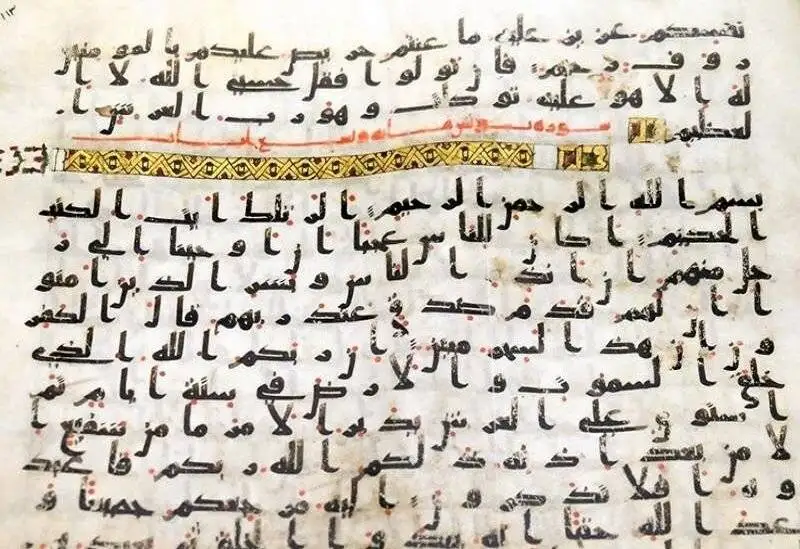 ١١٣
نفسكم عزيز عليه ما عنتم حريص عليكم بالمومنين
روف رحيم فان تولوا فقل حسبي الله لا ا
له الا هو عليه توكلت وهو رب العرش ا
لعظيم
سورة يونس مائة وتسع ايات
بسم الله الرحمن الرحيم الر تلك ايت الكتب
الحكيم اكان للناس عجبا ان اوحينا الى ر
جل منهم ان انذر الناس وبشر الذين امنو
ا ان لهم قدم صدق عند ربهم قال الكفر
ون ان هذا لسحر مبين ان ربكم الله الذي
خلق السموت والارض في ستة ايام ثم
استوى على العرش يدبر الامر ما من شفيع ا
لا من بعد اذنه ذلكم الله ربكم فاعبد
وه افلا تذكرون اليه مرجعكم جميعا و
عد الله حقا انه يبدوا الخلق ثم يعيد